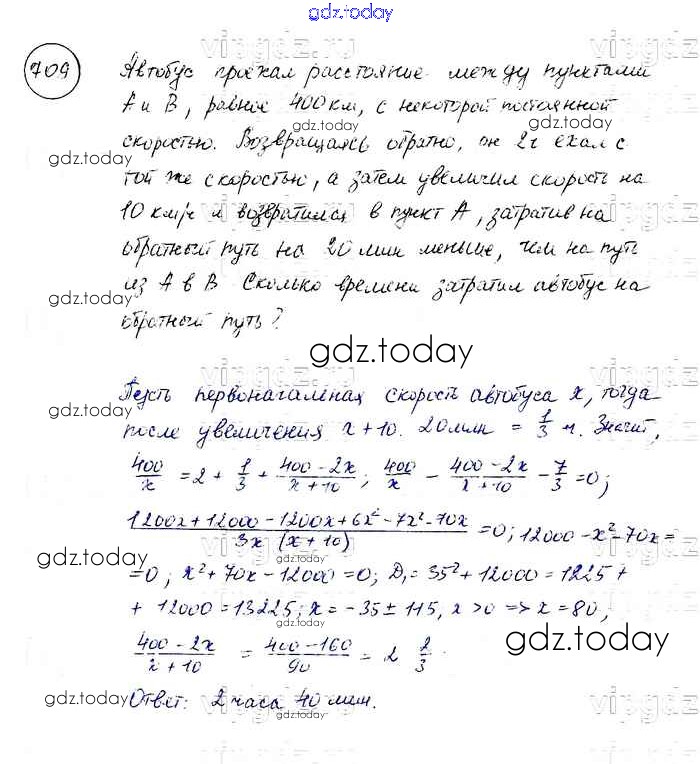 gdz.today
709
Автобус проехал расстояние между пунктами
А и В, равное 400 км, с некоторой постоянной
скоростью. Возвращаясь обратно, он 2ч ехал с
той же скоростью, а затем увеличил скорость на
10 км/ч и возвратился в пункт А, затратив на
обратный путь на 20 мин меньше, чем на путь
из А в В Сколько времени затратил автобус на
обратный путь?
Пусть первоначальная скорость автобуса x, тогда
после увеличения x + 10. 20мин = 1/3 ч. Значит,
400/x = 2 + 1/3 + (400 - 2x)/(x + 10); 400/x - (400 - 2x)/(x + 10) - 7/3 = 0;
(1200x + 12000 - 1200x + 6x² - 7x² - 70x)/(3x (x + 10)) = 0; 12000 - x² - 70x =
= 0; x² + 70x - 12000 = 0; D₁ = 35² + 12000 = 1225 +
+ 12000 = 13225; x = -35 ± 115, x > 0 => x = 80,
(400 - 2x)/(x + 10) = (400 - 160)/90 = 2 2/3
Ответ: 2 часа 40 мин.